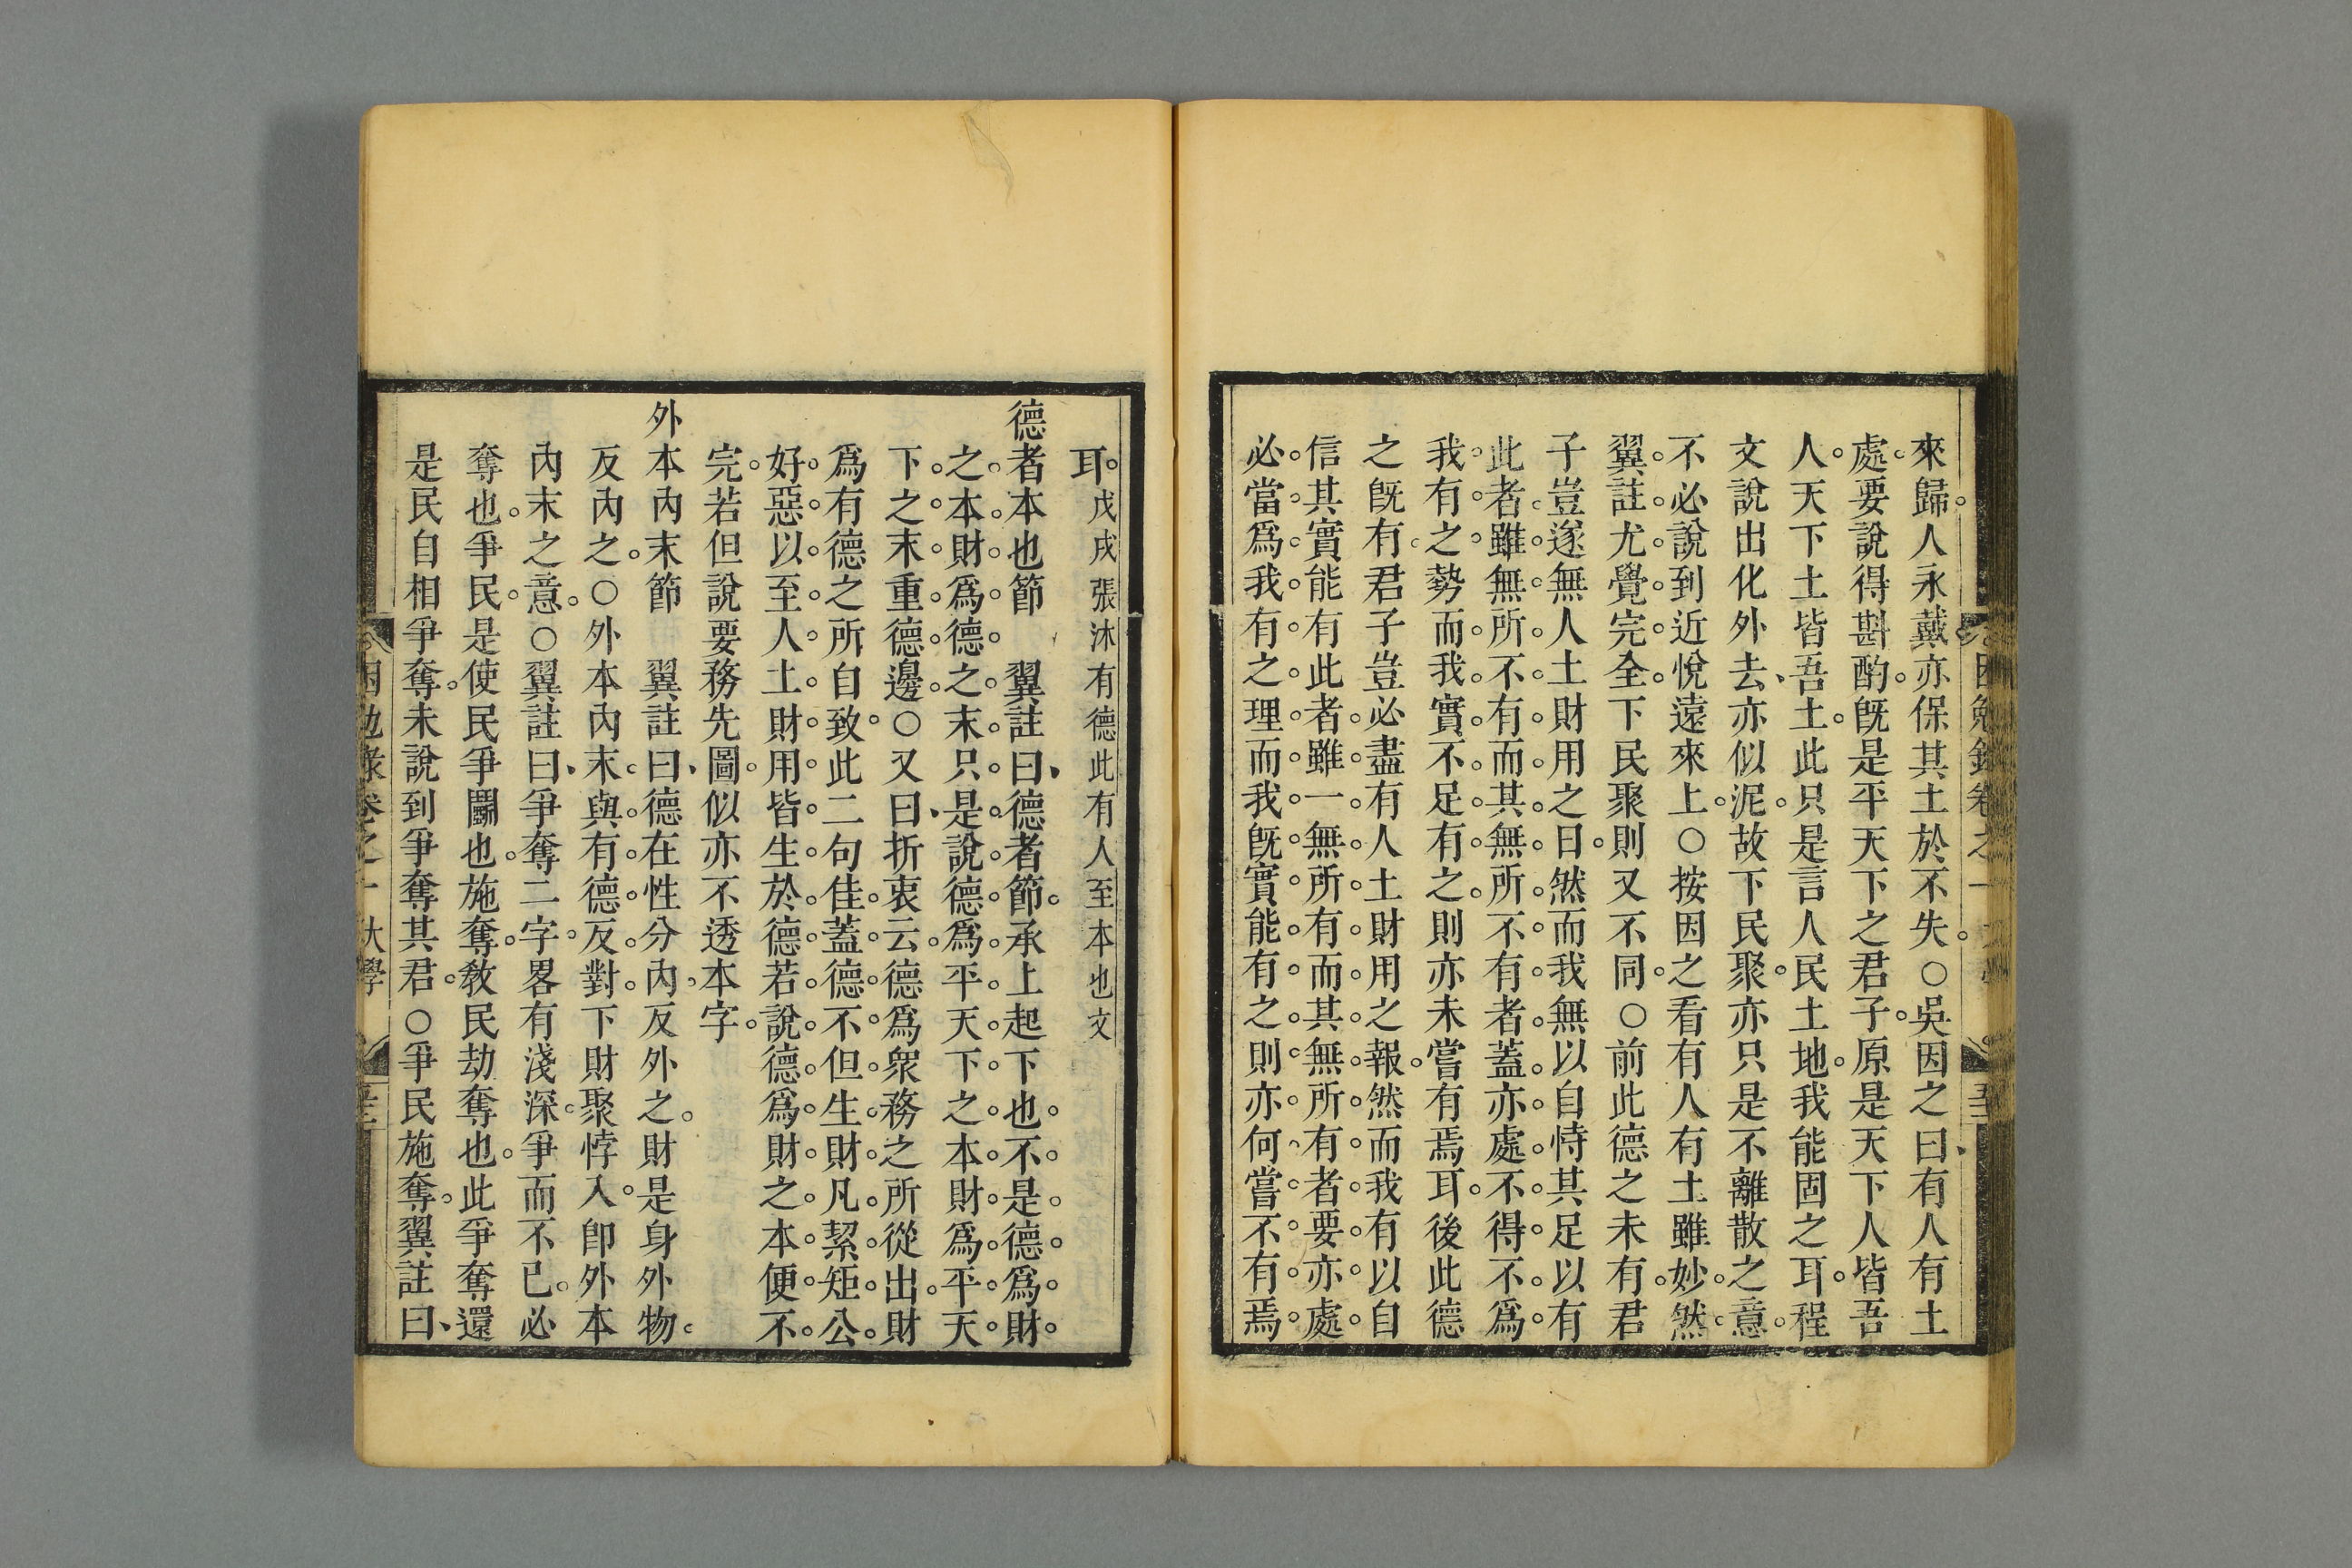 來歸。人永戴亦保其土於不失。○吳因之曰、有人有土
處。要說得斟酌。旣是平天下之君子。原是天下人皆吾
人。天下土皆吾土。此只是言人民土地。我能固之耳。程
文說出化外去、亦似泥。故下民聚。亦只是不離散之意。
不必說到近悅遠來上。○按因之看有人有土雖妙。然
翼註尤覺完全。下民聚。則又不同。○前此德之未有。君
子豈遂無人土財用之日。然而我無以自恃其足以有
此者。雖無所不有。而其無所不有者。蓋亦處不得不爲
我有之勢。而我實不足有之。則亦未嘗有焉耳。後此德
之旣有。君子豈必盡有人土財用之報。然而我有以自
信其實能有此者。雖一無所有。而其無所有者。要亦處
必當爲我有之理。而我旣實能有之。則亦何嘗不有焉
耳。戊戌張沐有德此有人至本也文
德者本也節　翼註曰、德者節。承上起下也。不是德爲財
之本。財爲德之末。只是說德爲平天下之本。財爲平天
下之末。重德邊。○又曰、折衷云。德爲衆務之所從出。財
爲有德之所自致。此二句佳。蓋德不但生財。凡絜矩公
好惡。以至人土財用。皆生於德。若說德爲財之本。便不
完。若但說要務先圖。似亦不透本字。
外本內末節　翼註曰、德在性分內。反外之。財是身外物。
反內之。○外本內末。與有德反對。下財聚悖入。卽外本
內末之意。○翼註曰、爭奪二字。畧有淺深。爭而不已。必
奪也。爭民。是使民爭鬭也。施奪。敎民劫奪也。此爭奪還
是民自相爭奪。未說到爭奪其君。○爭民施奪。翼註曰、
困勉錄卷之一 大學